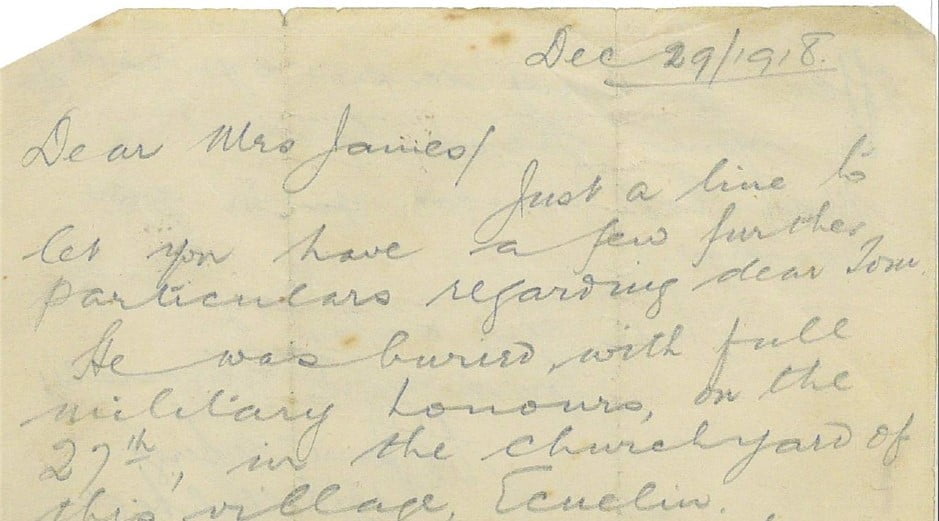 Dec 29/1918.
Dear Mrs James/
Just a line to
let you have a few further
particulars regarding dear Tom.
He was buried, with full
military honours, on the
27th, in the churchyard of
this village, Ecuelin.